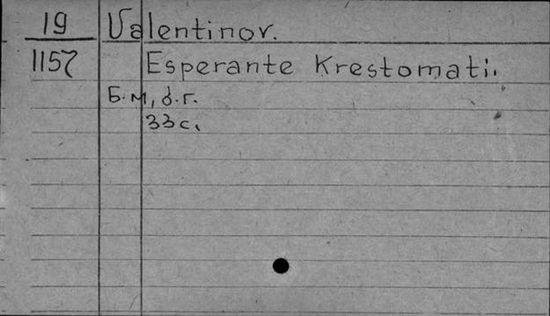 19 Valentinov.
1157 Esperante Krestomati.
Б.м, б.г.
33с.